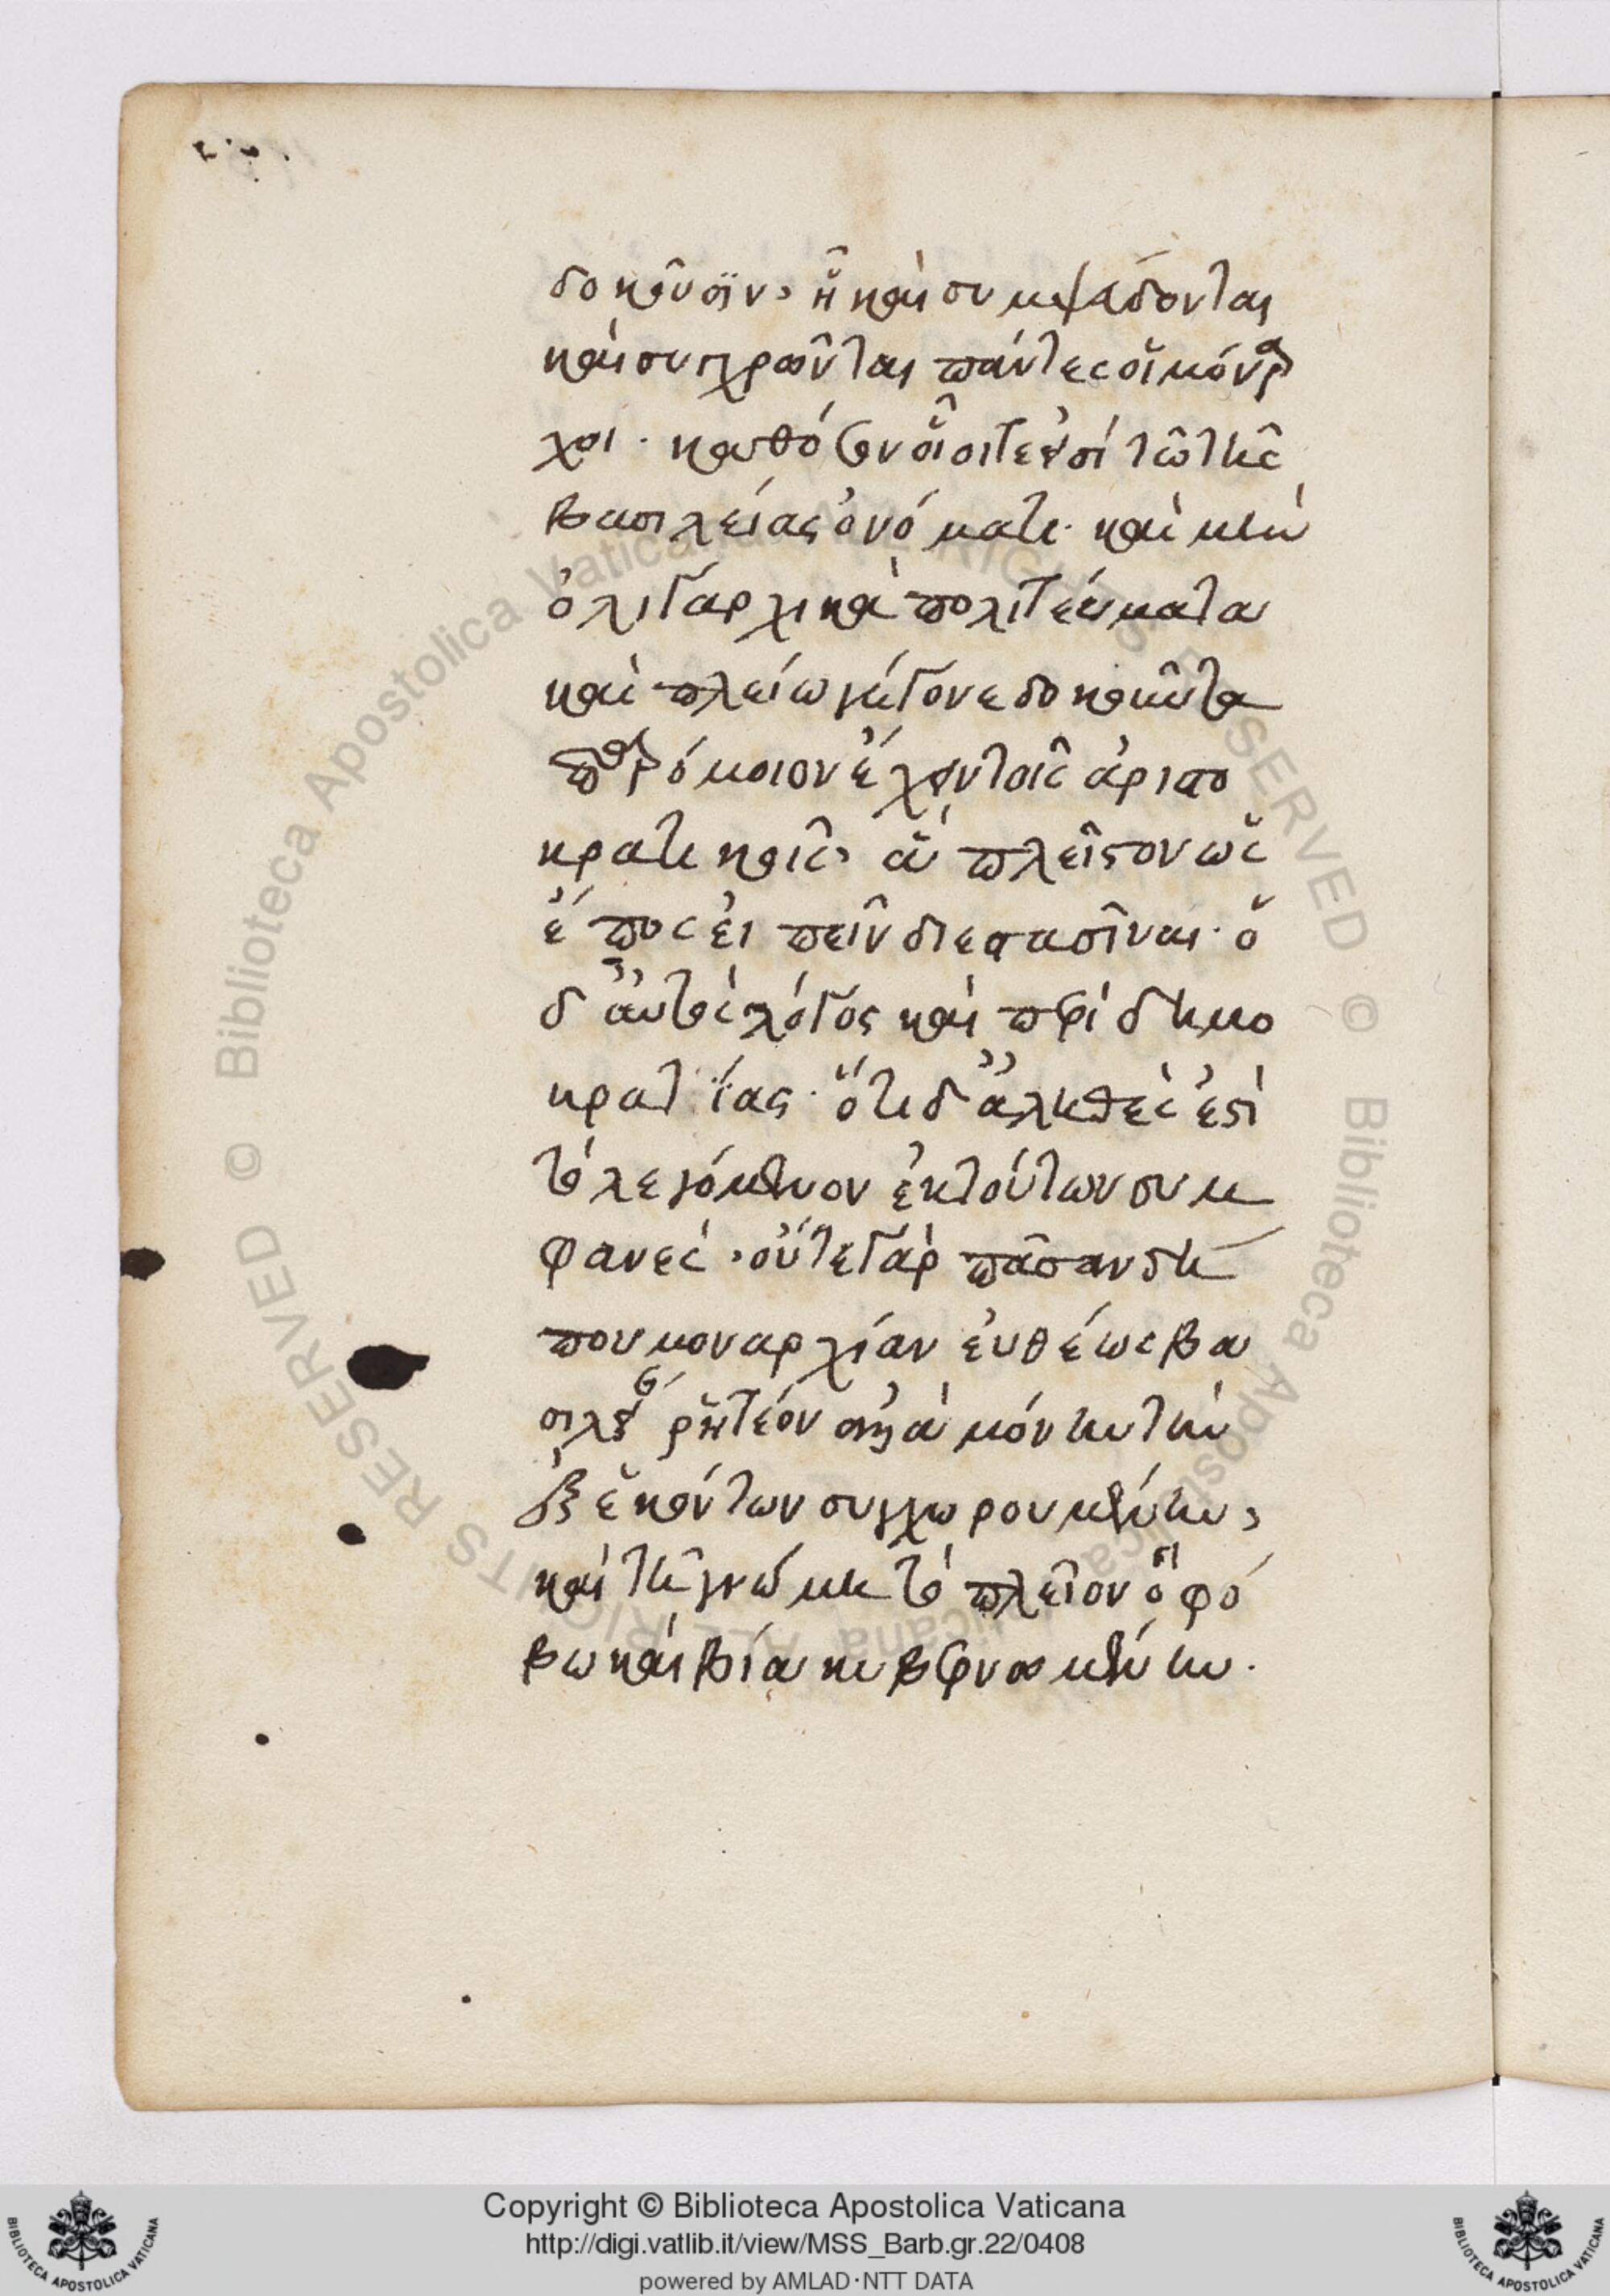 δοκοῦσιν, ᾗ καὶ συμψεύδονται
καὶ συγχρῶνται πάντες οἱ μόναρ
χοι. καθόσον οἷοί τ' εἰσὶ τῷ τῆς
βασιλείας ὀνόματι. καὶ μὴν
ὀλιγαρχικὰ πολιτεύματα
καὶ πλείω γέγονε δοκοῦντα
παρόμοιον ἔχειν τοῖς ἀριστο
κρατικοῖς, ἃ πλεῖστον ὡς
ἔπος εἰπεῖν διεστᾶσιν. ὁ
δ' αὐτὸς λόγος καὶ περὶ δημο
κρατίας. ὅτι δ' ἀληθές ἐστι
τὸ λεγόμενον ἐκ τούτων συμ
φανές, οὔτε γὰρ πᾶσαν δή
που μοναρχίαν εὐθέως βα
σιλείαν ῥητέον ἀλλὰ μόνην τὴν
ἐξ ἑκόντων συγχωρουμένην,
καὶ τῇ γνώμῃ τὸ πλεῖον ἢ φό
βῳ καὶ βίᾳ κυβερνωμένην.
Copyright © Biblioteca Apostolica Vaticana
http://digi.vatlib.it/view/MSS_Barb.gr.22/0408
powered by AMLAD·NTT DATA
© Biblioteca Apostolica Vaticana ALL RIGHTS RESERVED